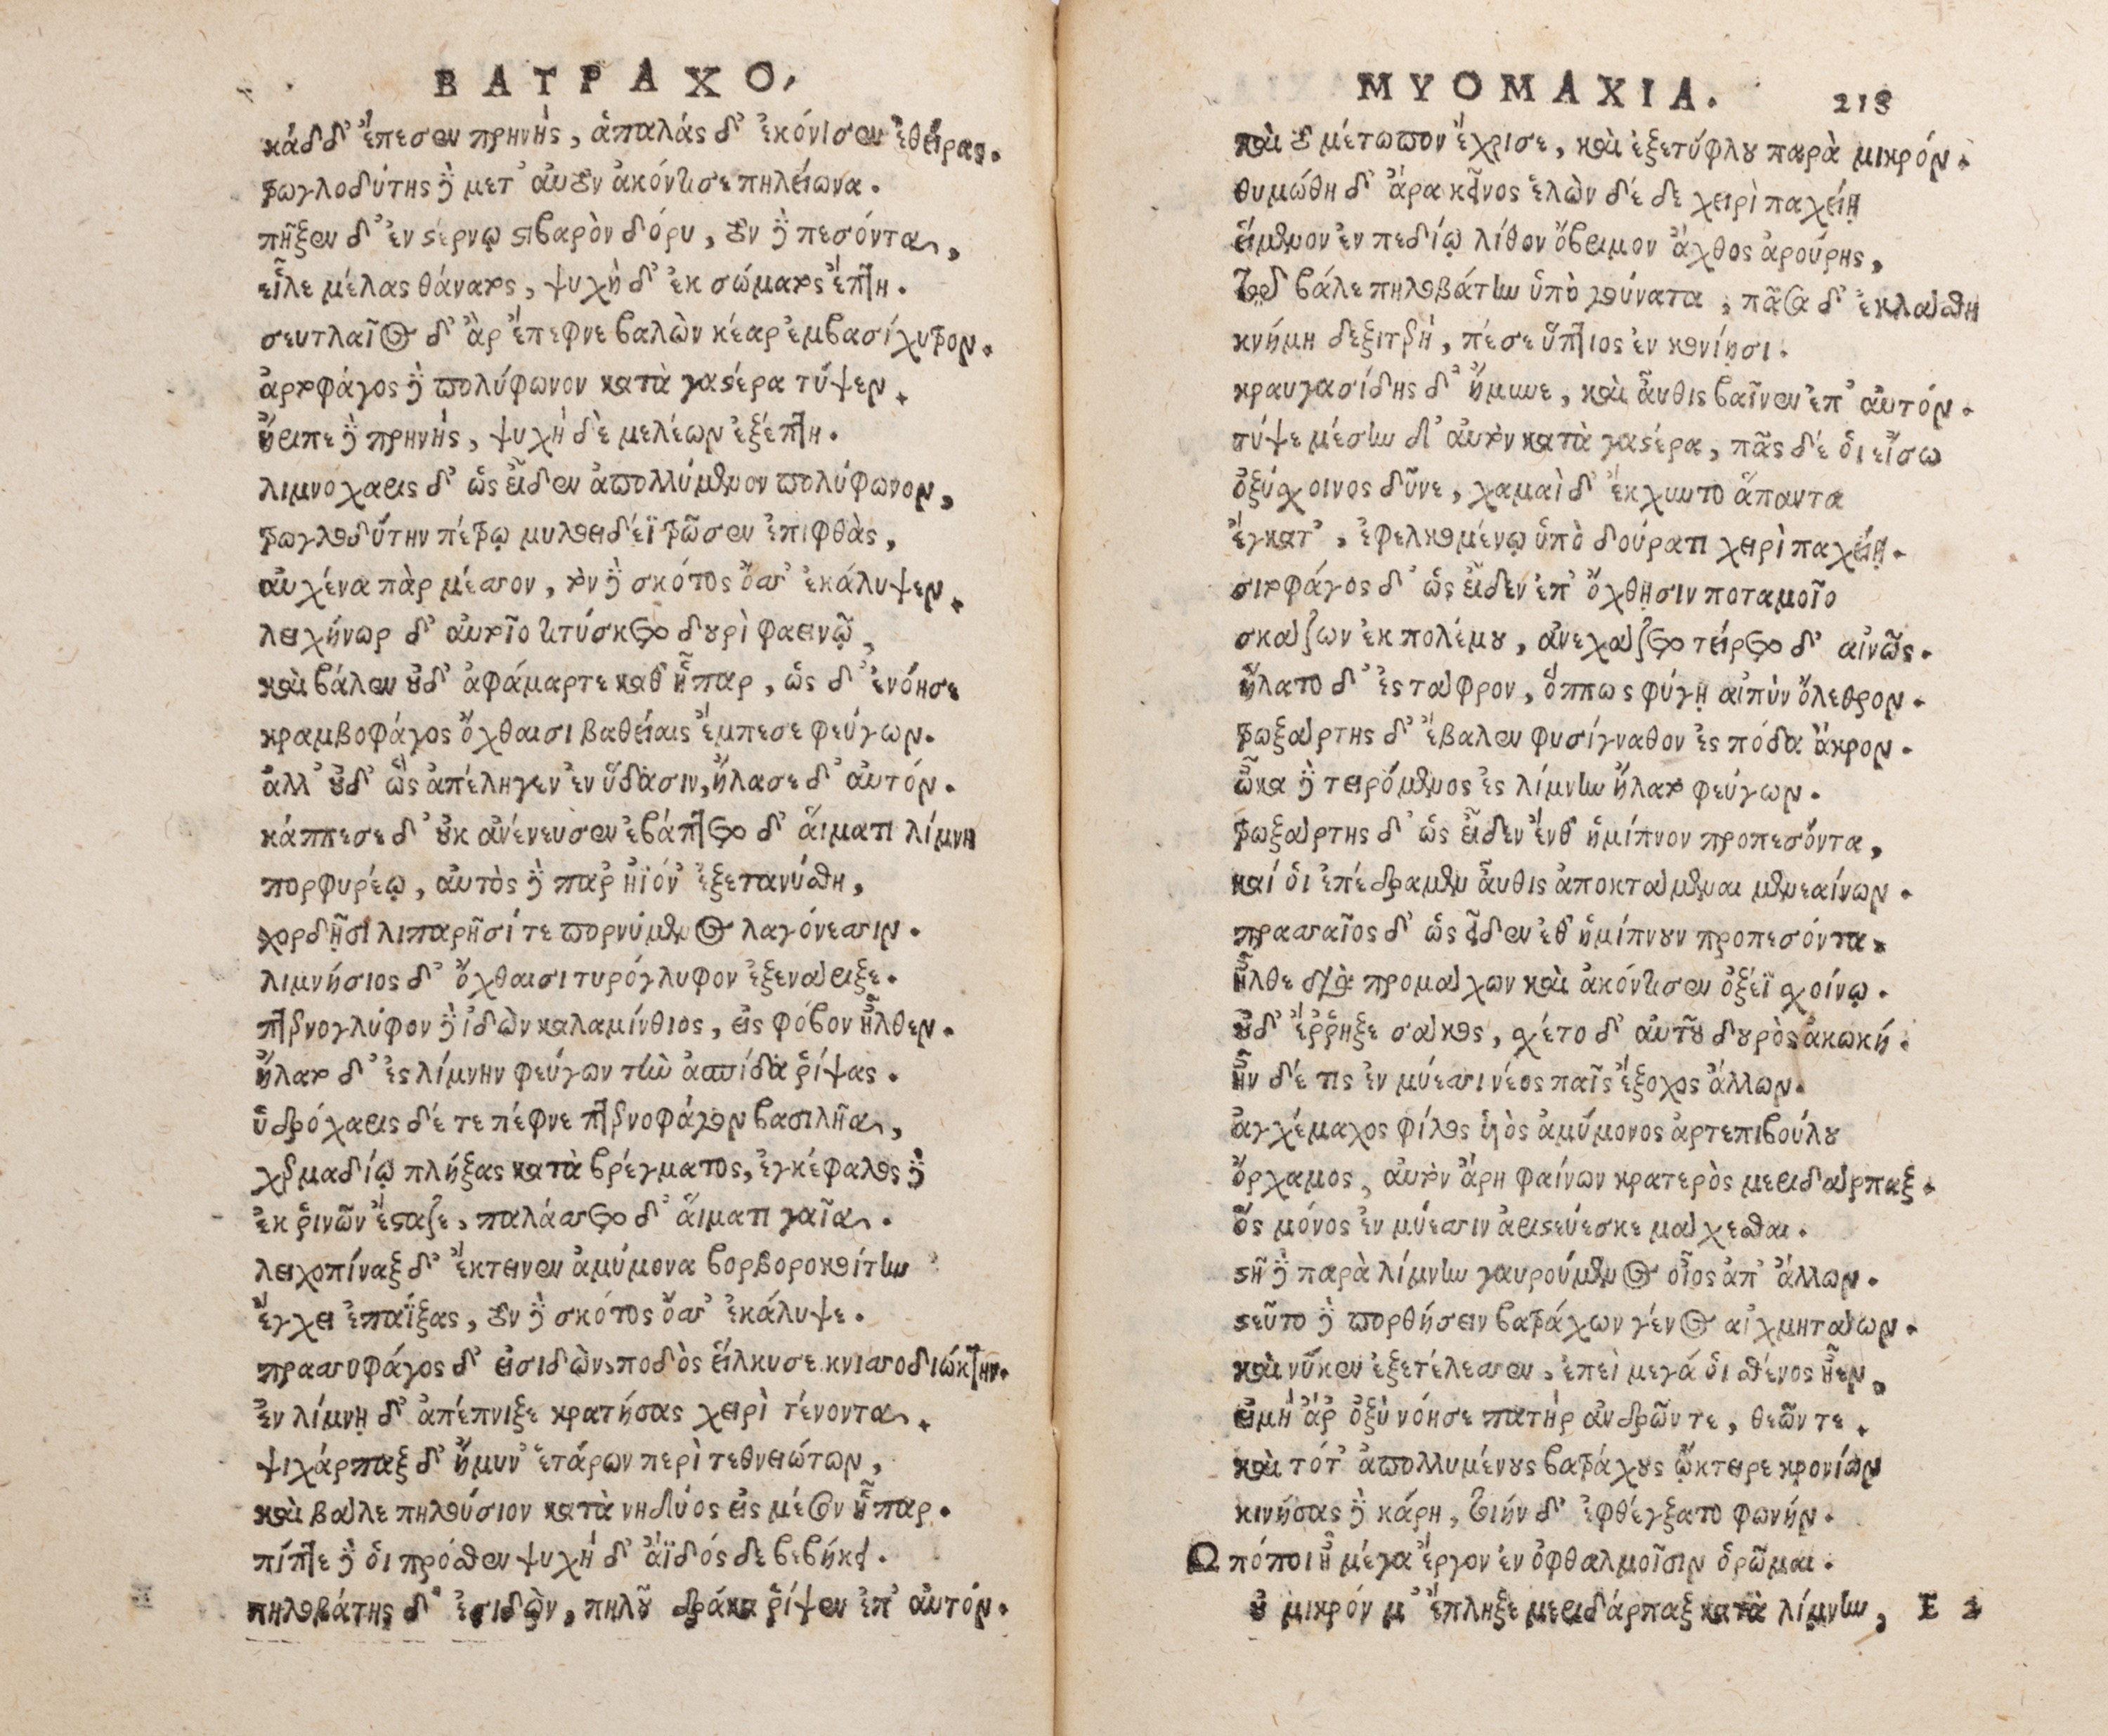 ΒΑΤΡΑΧΟ,
κάδδ' ἔπεσεν πρηνὴς, ἁπαλάς δ' ἐκόνισεν ἐθείρας.
τρωγλοδύτης δὲ μετ' αὐτὸν ἀκόντισε πηλείωνα.
πῆξεν δ' ἐν στέρνῳ στιβαρὸν δόρυ, τὸν δὲ πεσόντα,
εἷλε μέλας θάνατος, ψυχὴ δ' ἐκ σώματος ἔπτη.
σευτλαῖος δ' ἂρ ἔπεφνε βαλὼν κέαρ ἐμβασίχυτρον.
ἀρτοφάγος δὲ πολύφωνον κατὰ γαστέρα τύψεν.
ἤριπε δὲ πρηνὴς, ψυχὴ δὲ μελέων ἐξέπτη.
λιμνοχαρις δ' ὡς εἶδεν ἀπολλύμενον πολύφωνον,
τρωγλοδύτην πέτρῳ μυλοειδέϊ τρῶσεν ἐπιφθὰς,
αὐχένα πὰρ μέσσον, τὸν δὲ σκότος ὄσσ' ἐκάλυψεν.
λειχήνωρ δ' αὐτοῖο τιτύσκετο δουρὶ φαεινῷ,
καὶ βάλεν οὐδ' ἀφάμαρτε καθ' ἧπαρ, ὡς δ' ἐνόησε
κραμβοφάγος ὄχθαισι βαθείαις ἔμπεσε φεύγων.
ἀλλ' οὐδ' ὣς ἀπέληγεν ἐν ὕδασιν, ἤλασε δ' αὐτόν.
κάππεσε δ' οὐκ ἀνένευσεν ἐβάπτετο δ' αἵματι λίμνη
πορφυρέῳ, αὐτὸς δὲ παρ' ἠϊόν' ἐξετανύσθη,
χορδῇσι λιπαρῇσί τε πορνύμενος λαγόνεσσιν.
λιμνήσιος δ' ὄχθαισι τυρόγλυφον ἐξενάριξε.
πτερνογλύφον δὲ ἰδὼν καλαμίνθιος, εἰς φόβον ἦλθεν.
ἤλατο δ' ἐς λίμνην φεύγων τὴν ἀσπίδα ῥίψας.
ὑδρόχαρις δέ τε πέφνε πτερνοφάγον βασιλῆα,
χερμαδίῳ πλήξας κατὰ βρέγματος, ἐγκέφαλος δὲ
ἐκ ῥινῶν ἔσταζε, παλάσσετο δ' αἵματι γαῖα.
λειχοπίναξ δ' ἔκτεινεν ἀμύμονα βορβοροκοίτην
ἔγχει ἐπαΐξας, τὸν δὲ σκότος ὄσσ' ἐκάλυψε.
πρασσοφάγος δ' εἰσιδὼν, ποδὸς εἵλκυσε κνισσοδιώκτην.
ἐν λίμνῃ δ' ἀπέπνιξε κρατήσας χειρὶ τένοντα.
ψιχάρπαξ δ' ἤμυν' ἑτάρων περὶ τεθνειώτων,
καὶ βάλε πηλούσιον κατὰ νηδύος εἰς μέσον ἧπαρ.
πίπτε δὲ οἱ πρόσθεν ψυχὴ δ' ἄϊδός δε βεβήκει.
πηλοβάτης δ' ἐσιδὼν, πηλοῦ δράκα ῥίψεν ἐπ' αὐτόν.
ΜΥΟΜΑΧΙΑ. 213
καὶ τὸ μέτωπον ἔχρισε, καὶ ἐξετύφλου παρὰ μικρόν.
θυμώθη δ' ἄρα κεῖνος ἑλὼν δέ δε χειρὶ παχείῃ
εἵμενον ἐν πεδίῳ λίθον ὄβριμον ἄχθος ἀρούρης,
τῷ βάλε πηλοβάτην ὑπὸ γούνατα, πᾶσα δ' ἐκλάσθη
κνήμη δεξιτερὴ, πέσε ὕπτιος ἐν κονίῃσι.
κραυγασίδης δ' ἤμυνε, καὶ αὖθις βαῖνεν ἐπ' αὐτόν.
τύψε μέσην δ' αὐτὸν κατὰ γαστέρα, πᾶς δέ οἱ εἴσω
ὀξύσχοινος δῦνε, χαμαὶ δ' ἔκχυντο ἅπαντα
ἔγκατ', ἐφελκομένῳ ὑπὸ δούρατι χειρὶ παχείῃ.
σιτοφάγος δ' ὡς εἶδεν ἐπ' ὄχθῃσιν ποταμοῖο
σκάζων ἐκ πολέμου, ἀνεχάζετο τείρετο δ' αἰνῶς.
ἥλατο δ' ἐς τάφρον, ὅππως φύγῃ αἰπὺν ὄλεθρον.
τρωξάρτης δ' ἔβαλεν φυσίγναθον ἐς πόδα ἄκρον.
ὦκα δὲ τειρόμενος ἐς λίμνην ἥλατο φεύγων.
τρωξάρτης δ' ὡς εἶδεν ἔνθ' ἡμίπνον προπεσόντα,
καί οἱ ἐπέδραμεν αὖθις ἀποκτάμεναι μενεαίνων.
πρασσαῖος δ' ὡς εἶδεν ἔθ' ἡμίπνουν προπεσόντα,
ἦλθε διὰ προμάχων καὶ ἀκόντισεν ὀξέϊ σχοίνῳ.
οὐδ' ἔῤῥηξε σάκος, σχέτο δ' αὐτοῦ δουρὸς ἀκωκή.
ἦν δέ τις ἐν μύεσσι νέος παῖς ἔξοχος ἄλλων.
ἀγχέμαχος φίλος υἱὸς ἀμύμονος ἀρτεπιβούλου
ὄρχαμος, αὐτὸν ἄρη φαίνων κρατερὸς μεριδάρπαξ.
ὃς μόνος ἐν μύεσσιν ἀριστεύεσκε μάχεσθαι.
στῆ δὲ παρὰ λίμνην γαυρούμενος οἶος ἀπ' ἄλλων.
στεῦτο δὲ πορθήσειν βατράχων γένος αἰχμητάων.
καὶ νύκεν ἐξετέλεσσεν, ἐπεὶ μεγά οἱ σθένος ἦεν,
εἰμὴ ἄρ' ὀξὺ νόησε πατὴρ ἀνδρῶν τε, θεῶν τε.
καὶ τότ' ἀπολλυμένους βατράχους ᾤκτειρε κρονίων
κινήσας δὲ κάρη, τοιήν δ' ἐφθέγξατο φωνήν.
Ω πόποι ἦ μέγα ἔργον ἐν ὀφθαλμοῖσιν ὁρῶμαι.
οὐ μικρόν μ' ἔπληξε μεριδάρπαξ κατὰ λίμνην, E 2